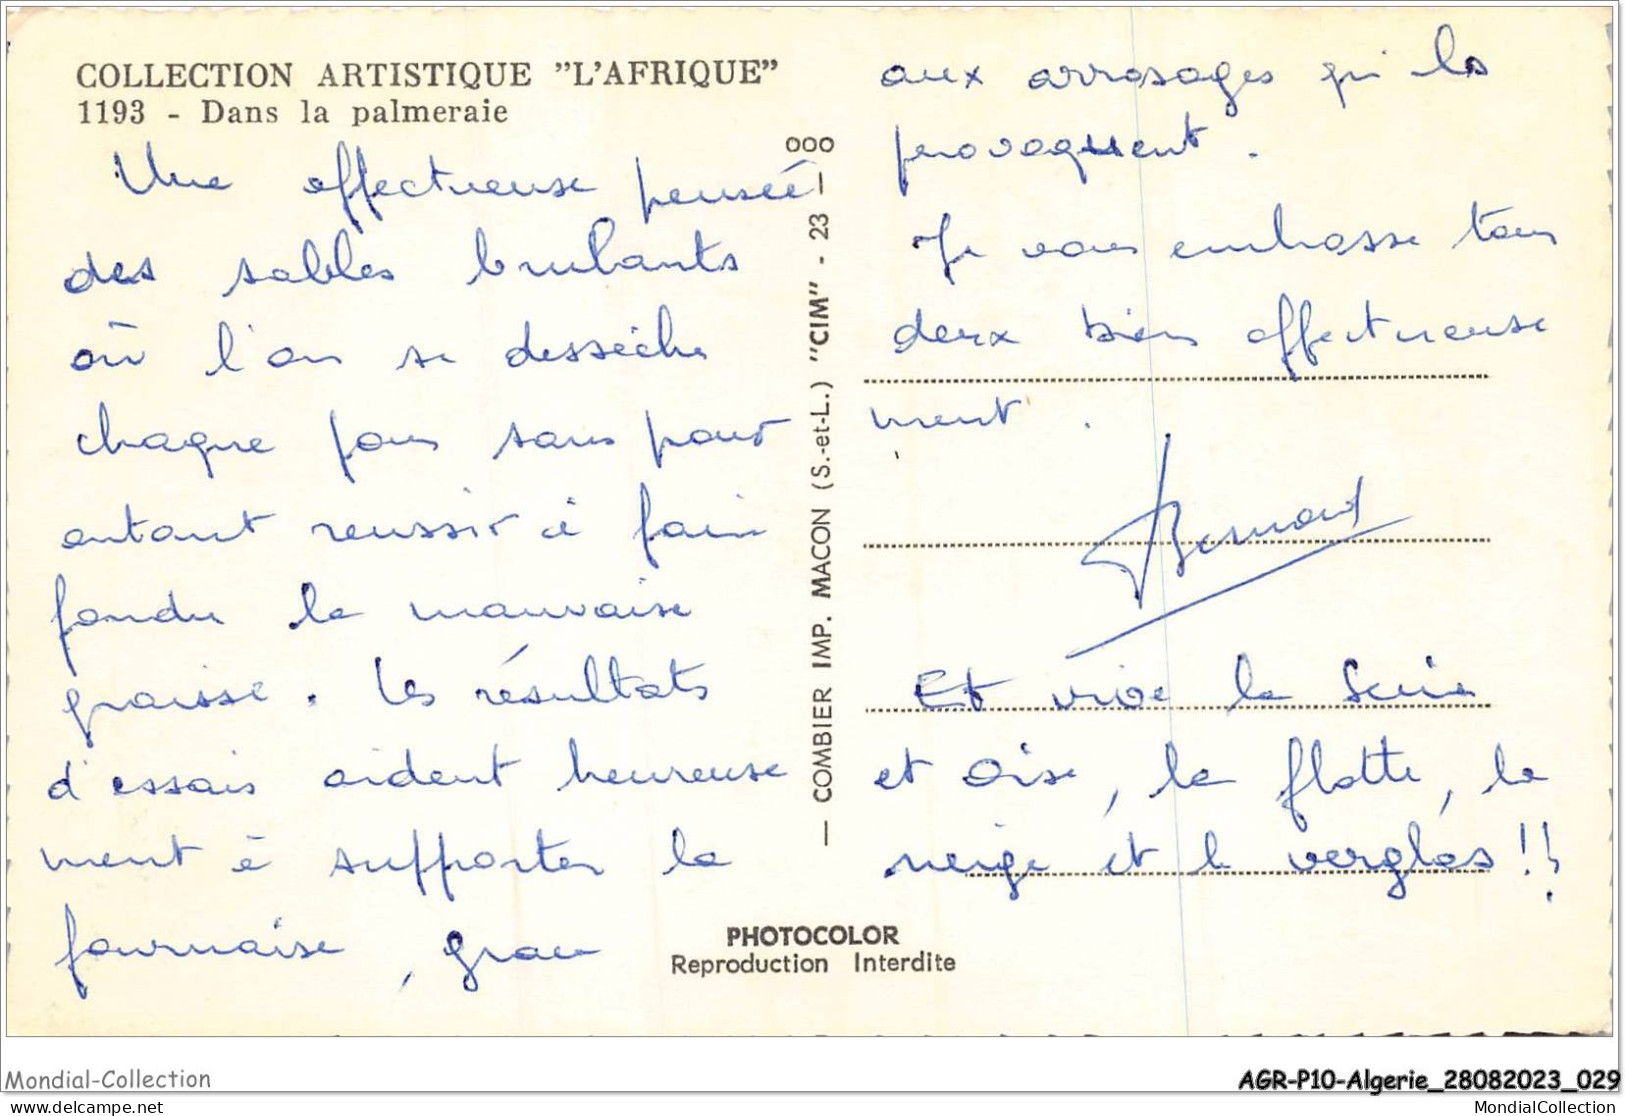 COLLECTION ARTISTIQUE "L'AFRIQUE"
1193 - Dans la palmeraie
Une affectueuse pensée
des sables brulants
où l'on se dessèche
chaque jour sans pour
autant reussir à faire
fondre la mauvaise
graisse. Les résultats
d'essais aident heureuse
ment à supporter la
fournaise, grace
aux arrosages qui les
provoquent.
Je vous embrasse tous
deux bien affectueuse
ment.
Bernard
Et vive la Seine
et Oise, la flotte, la
neige et le verglas !!
— COMBIER IMP. MACON (S.-et-L.) "CIM" - 23 — 000
PHOTOCOLOR
Reproduction Interdite
Mondial-Collection
delcampe.net
AGR-P10-Algerie_28082023_029
MondialCollection